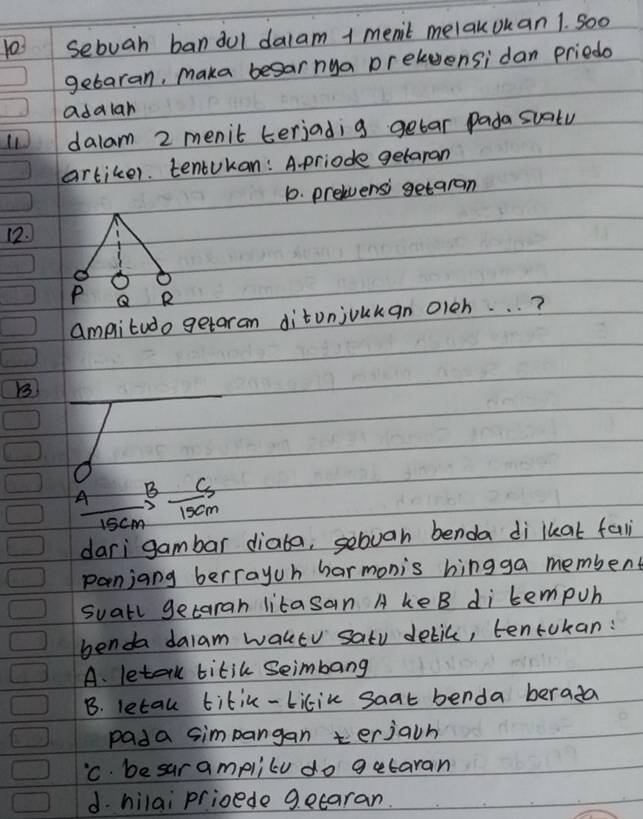 10 sebuah bandul dalam 1 menit melakukan 1.500
getaran, maka besarnya prekuensi dan priedo
adalah
11 dalam 2 menit terjadi 9 getar pada suatu
artikel. tentukan: A. priode getaran
b. prekuensi getaran
12.
P Q R
ampitudo getaran ditunjukkan oleh ...?
13
A B C
15cm 15cm
dari gambar diata, sebuah benda di ikat tali
panjang berrayun harmonis hingga membent
suatu getaran litasan A ke B di tempuh
benda dalam waktu satu detik, tentukan:
A. letak titik seimbang
B. letak titik-titik saat benda berada
pada simpangan terjauh
c. besar amplitudo getaran
d. nilai prioede getaran.